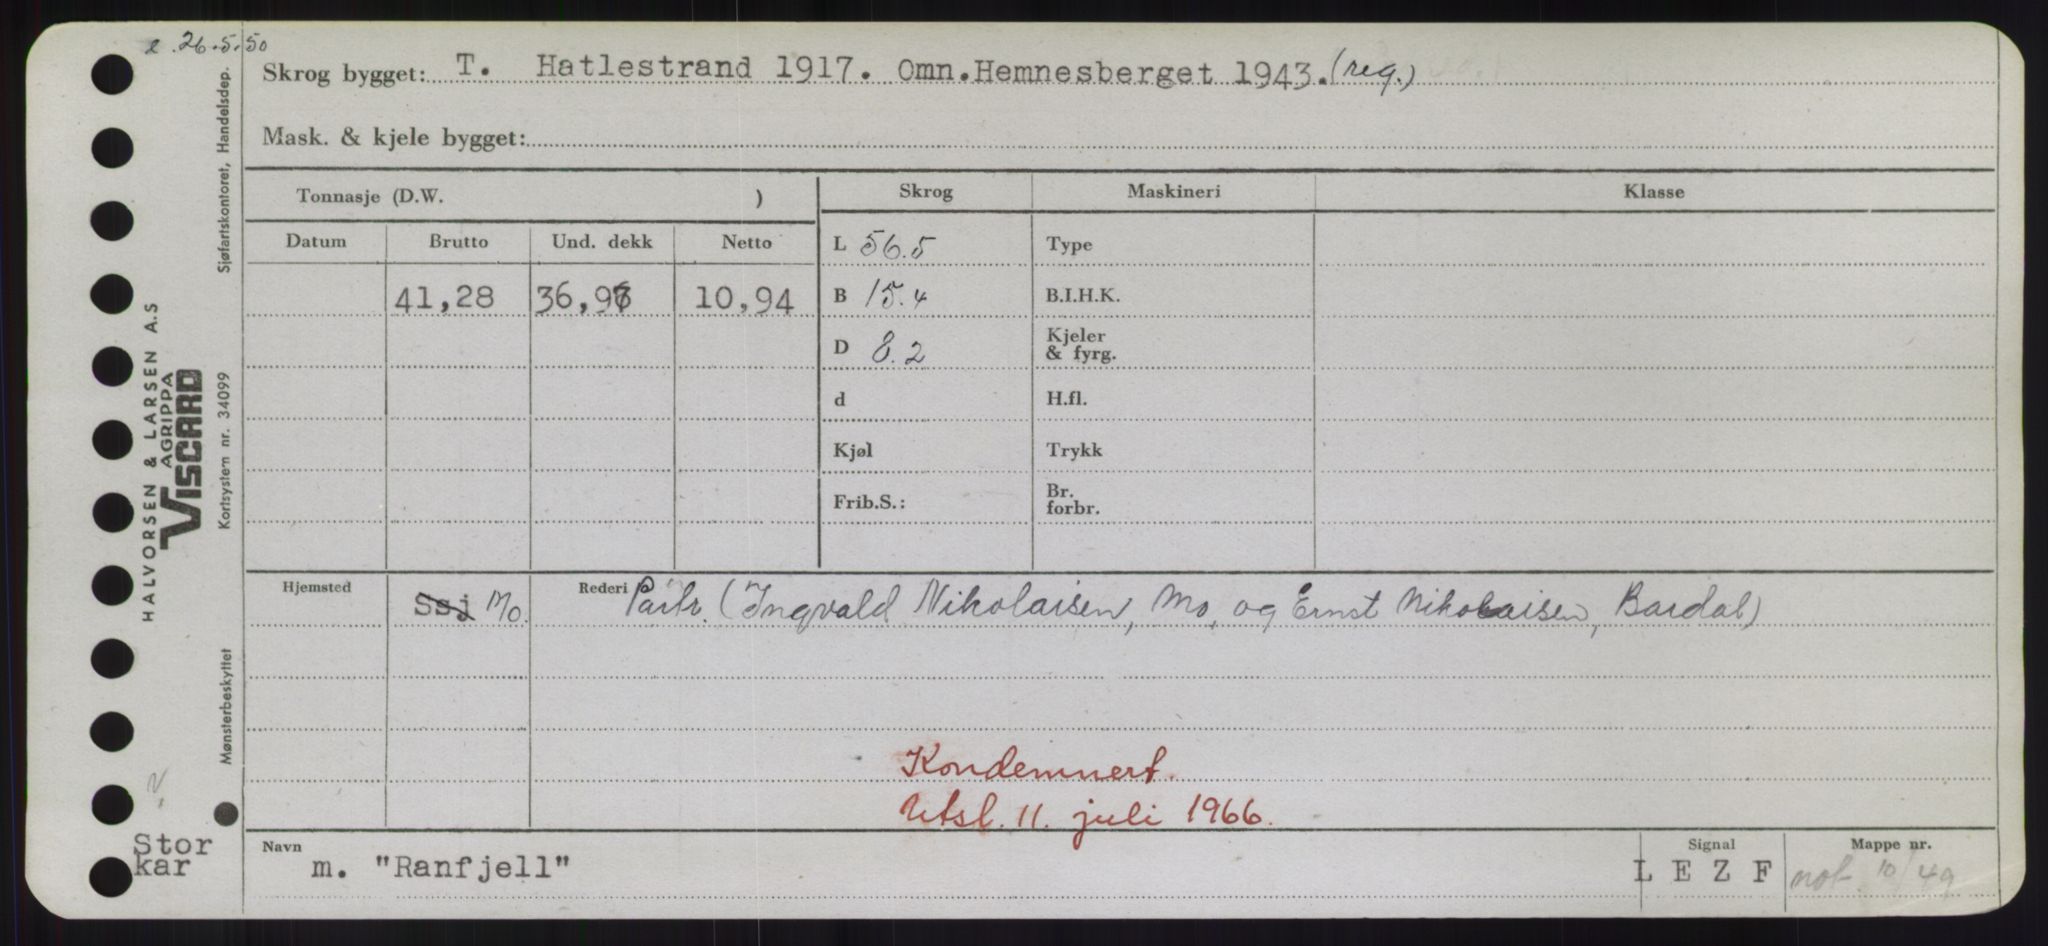 2. 26.5.50
Skrog bygget: T. Hatlestrand 1917. Omn.Hemnesberget 1943. (reg.)
Mask. & kjele bygget:
Tonnasje (D.W. )
Skrog Maskineri Klasse
Datum Brutto Und. dekk Netto
L 56.5 Type
41,28 36,96 10,94
B 15.4 B.I.H.K.
D 8.2 Kjeler & fyrg.
d H.fl.
Kjøl Trykk
Frib.S.: Br. forbr.
Hjemsted Ssj Mo Rederi Partr. (Ingvald Nikolaisen, Mo, og Ernst Nikolaisen, Bardal)
Kondemnert.
Utsl. 11. juli 1966.
Navn m. "Ranfjell"
Signal L E Z F
Mappe nr. not 10/49
Stor
kar
HALVORSEN & LARSEN A.S
AGRIPPA
VISCARD
Mønsterbeskyttet Kortsystem nr. 34099 Sjøfartskontoret, Handelsdep.